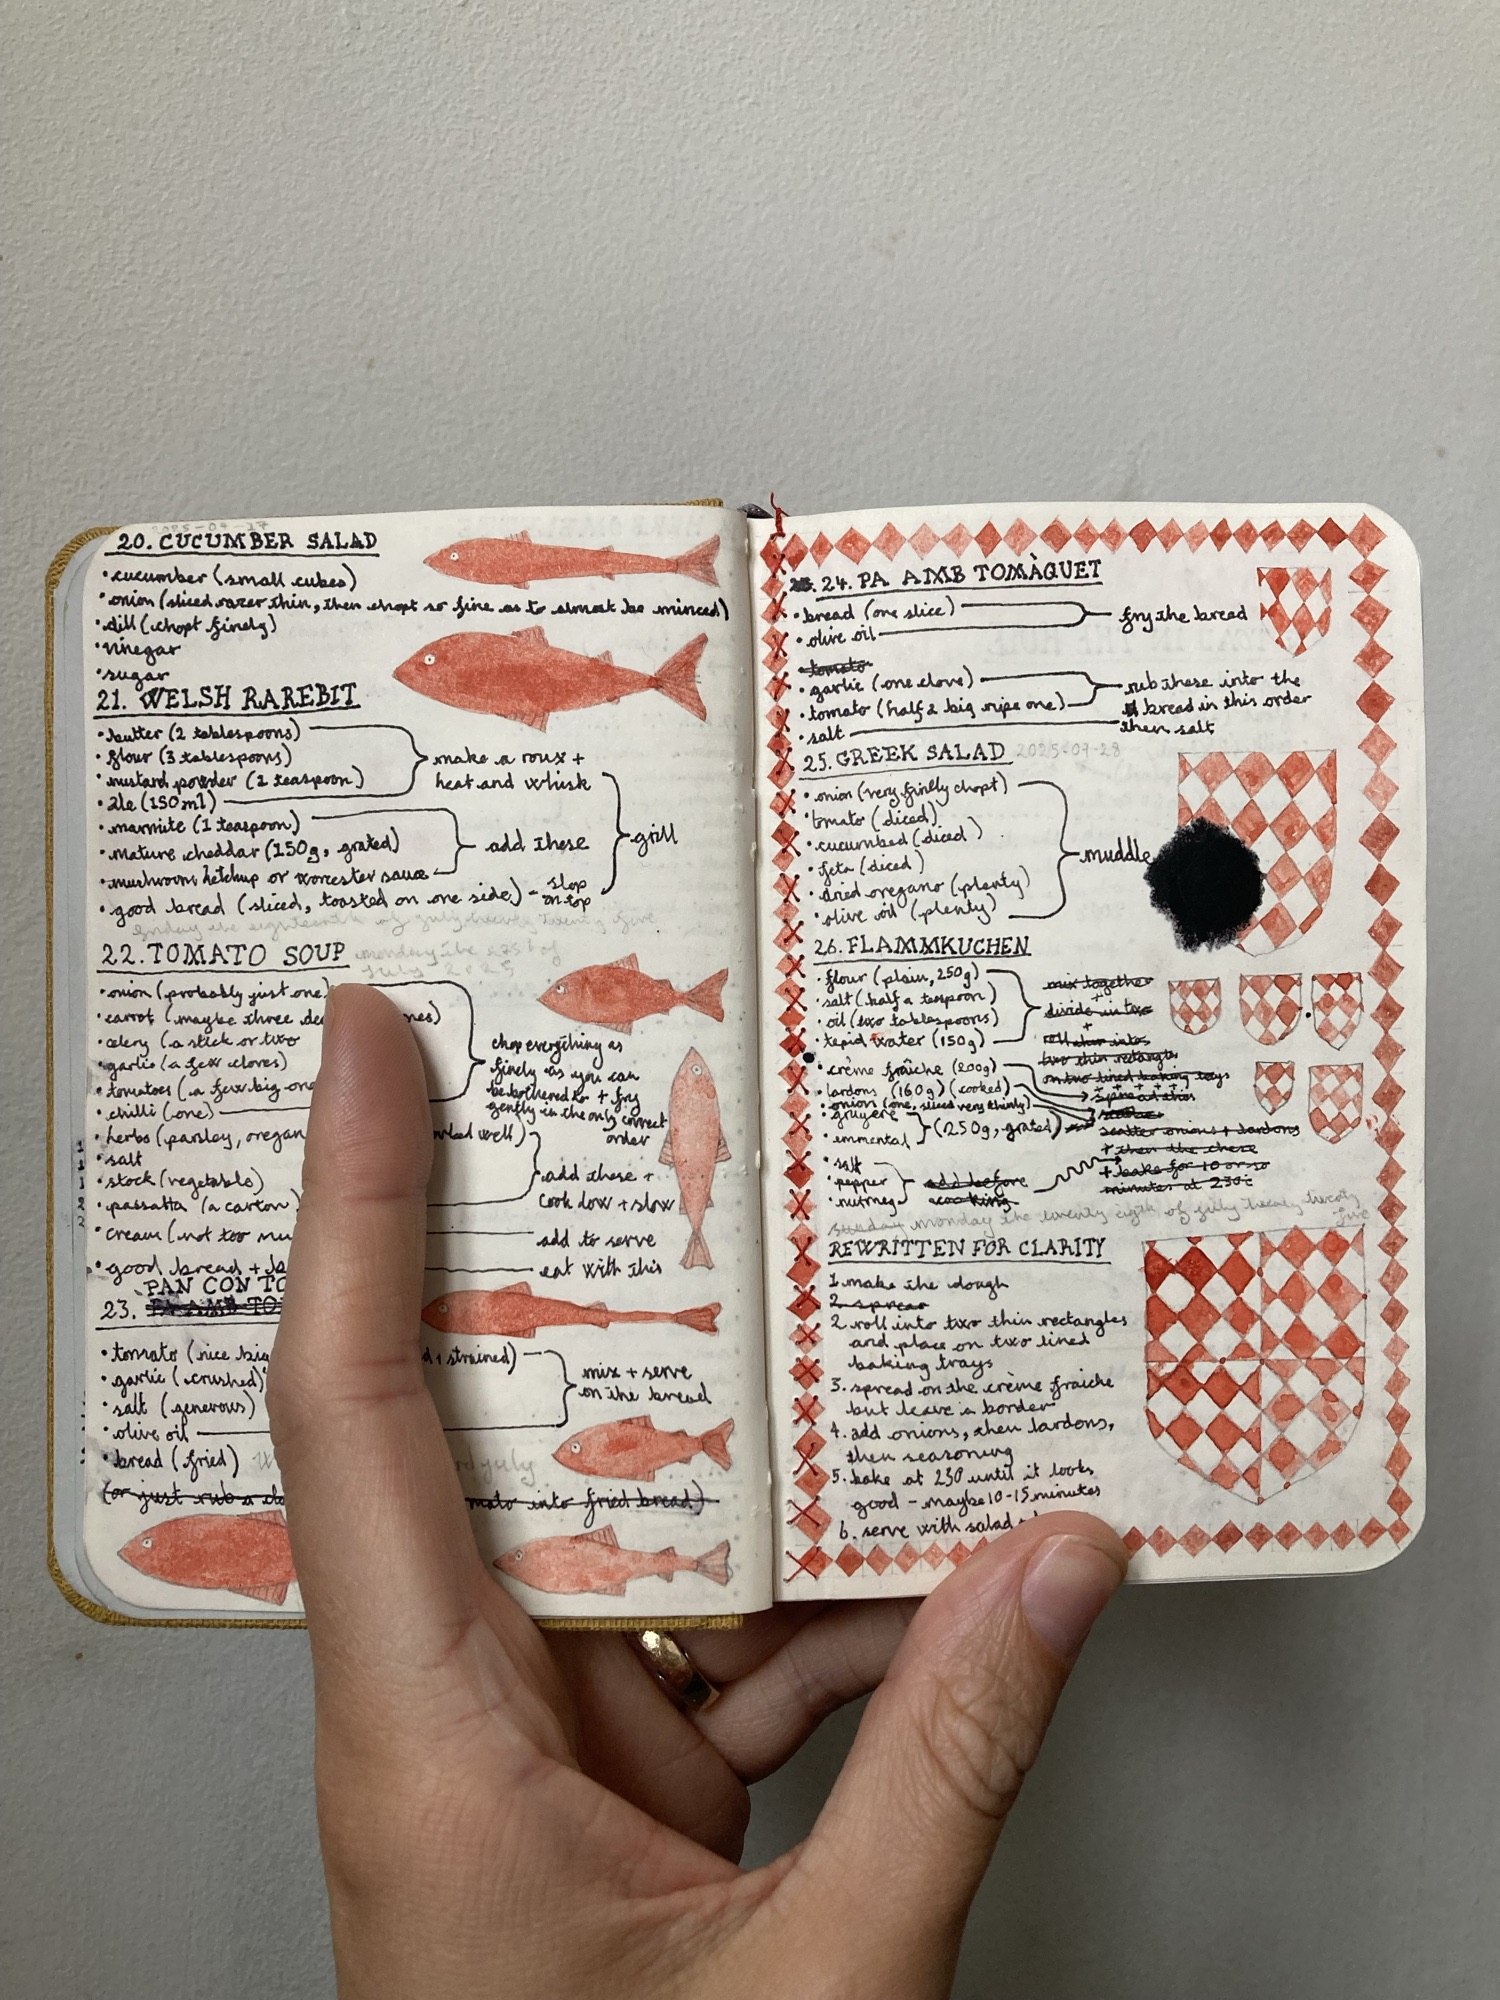 2025-07-17
20. CUCUMBER SALAD
• cucumber (small cubes)
• onion (sliced razer thin, then chopt so fine as to almost be minced)
• dill (chopt finely)
• vinegar
• sugar
21. WELSH RAREBIT
• butter (2 tablespoons)
• flour (3 tablespoons)
• mustard powder (2 teaspoon)
• ale (150ml)
make a roux +
heat and whisk
• marmite (1 teaspoon)
• mature cheddar (150g, grated)
• mushroom ketchup or worcester sauce
add these
grill
• good bread (sliced, toasted on one side)
- slop
on top
friday the eighteenth of july twenty twenty five
22. TOMATO SOUP
monday the 21st of
july 2025
• onion (probably just one)
• carrot (maybe three
• celery (a stick or two
• garlic (a few cloves)
• tomatoes (a few big one
• chilli (one)
chop everything as
finely as you can
be bothered to + fry
gently in the only correct
order
• herbs (parsley, oregan
well)
• salt
• stock (vegetable)
• passatta (a carton)
add these +
cook low + slow
• cream (not too mu
add to serve
• good bread +
eat with this
PAN CON TO
23. PA AMB TO
• tomato (nice big
+ strained)
• garlic (crushed)
• salt (generous)
• olive oil
mix + serve
on the bread
• bread (fried)
july
(or just rub a clo
mato into fried bread)
24. PA AMB TOMÀQUET
• bread (one slice)
• olive oil
fry the bread
• tomato
• garlic (one clove)
• tomato (half a big ripe one)
• salt
rub these into the
bread in this order
then salt
25. GREEK SALAD
2025-07-28
• onion (very finlly chopt)
• tomato (diced)
• cucumbed (diced)
• feta (diced)
• dried oregano (plenty)
• olive oil (plenty)
muddle
26. FLAMMKUCHEN
• flour (plain, 250g)
• salt (half a teaspoon)
• oil (two tablespoons)
• tepid water (150g)
mix together
+
divide in two
+
roll into
two thin rectangles
on two lined baking trays
• crème fraîche (200g)
• lardons (160g) (cooked)
• onion (one, sliced very thinly)
• gruyere
• emmental
(250g, grated)
scatter onions + lardons
+ then the cheese
+ bake for 10 or so
minutes at 230c
• salt
• pepper
• nutmeg
add before
cooking
sunday monday the twenty eigth of july twenty twenty
five
REWRITTEN FOR CLARITY
1. make the dough
2. spread
2. roll into two thin rectangles
and place on two lined
baking trays
3. spread on the crème fraiche
but leave a border
4. add onions, then lardons,
then seasoning
5. bake at 230 until it looks
good - maybe 10-15 minutes
6. serve with salad